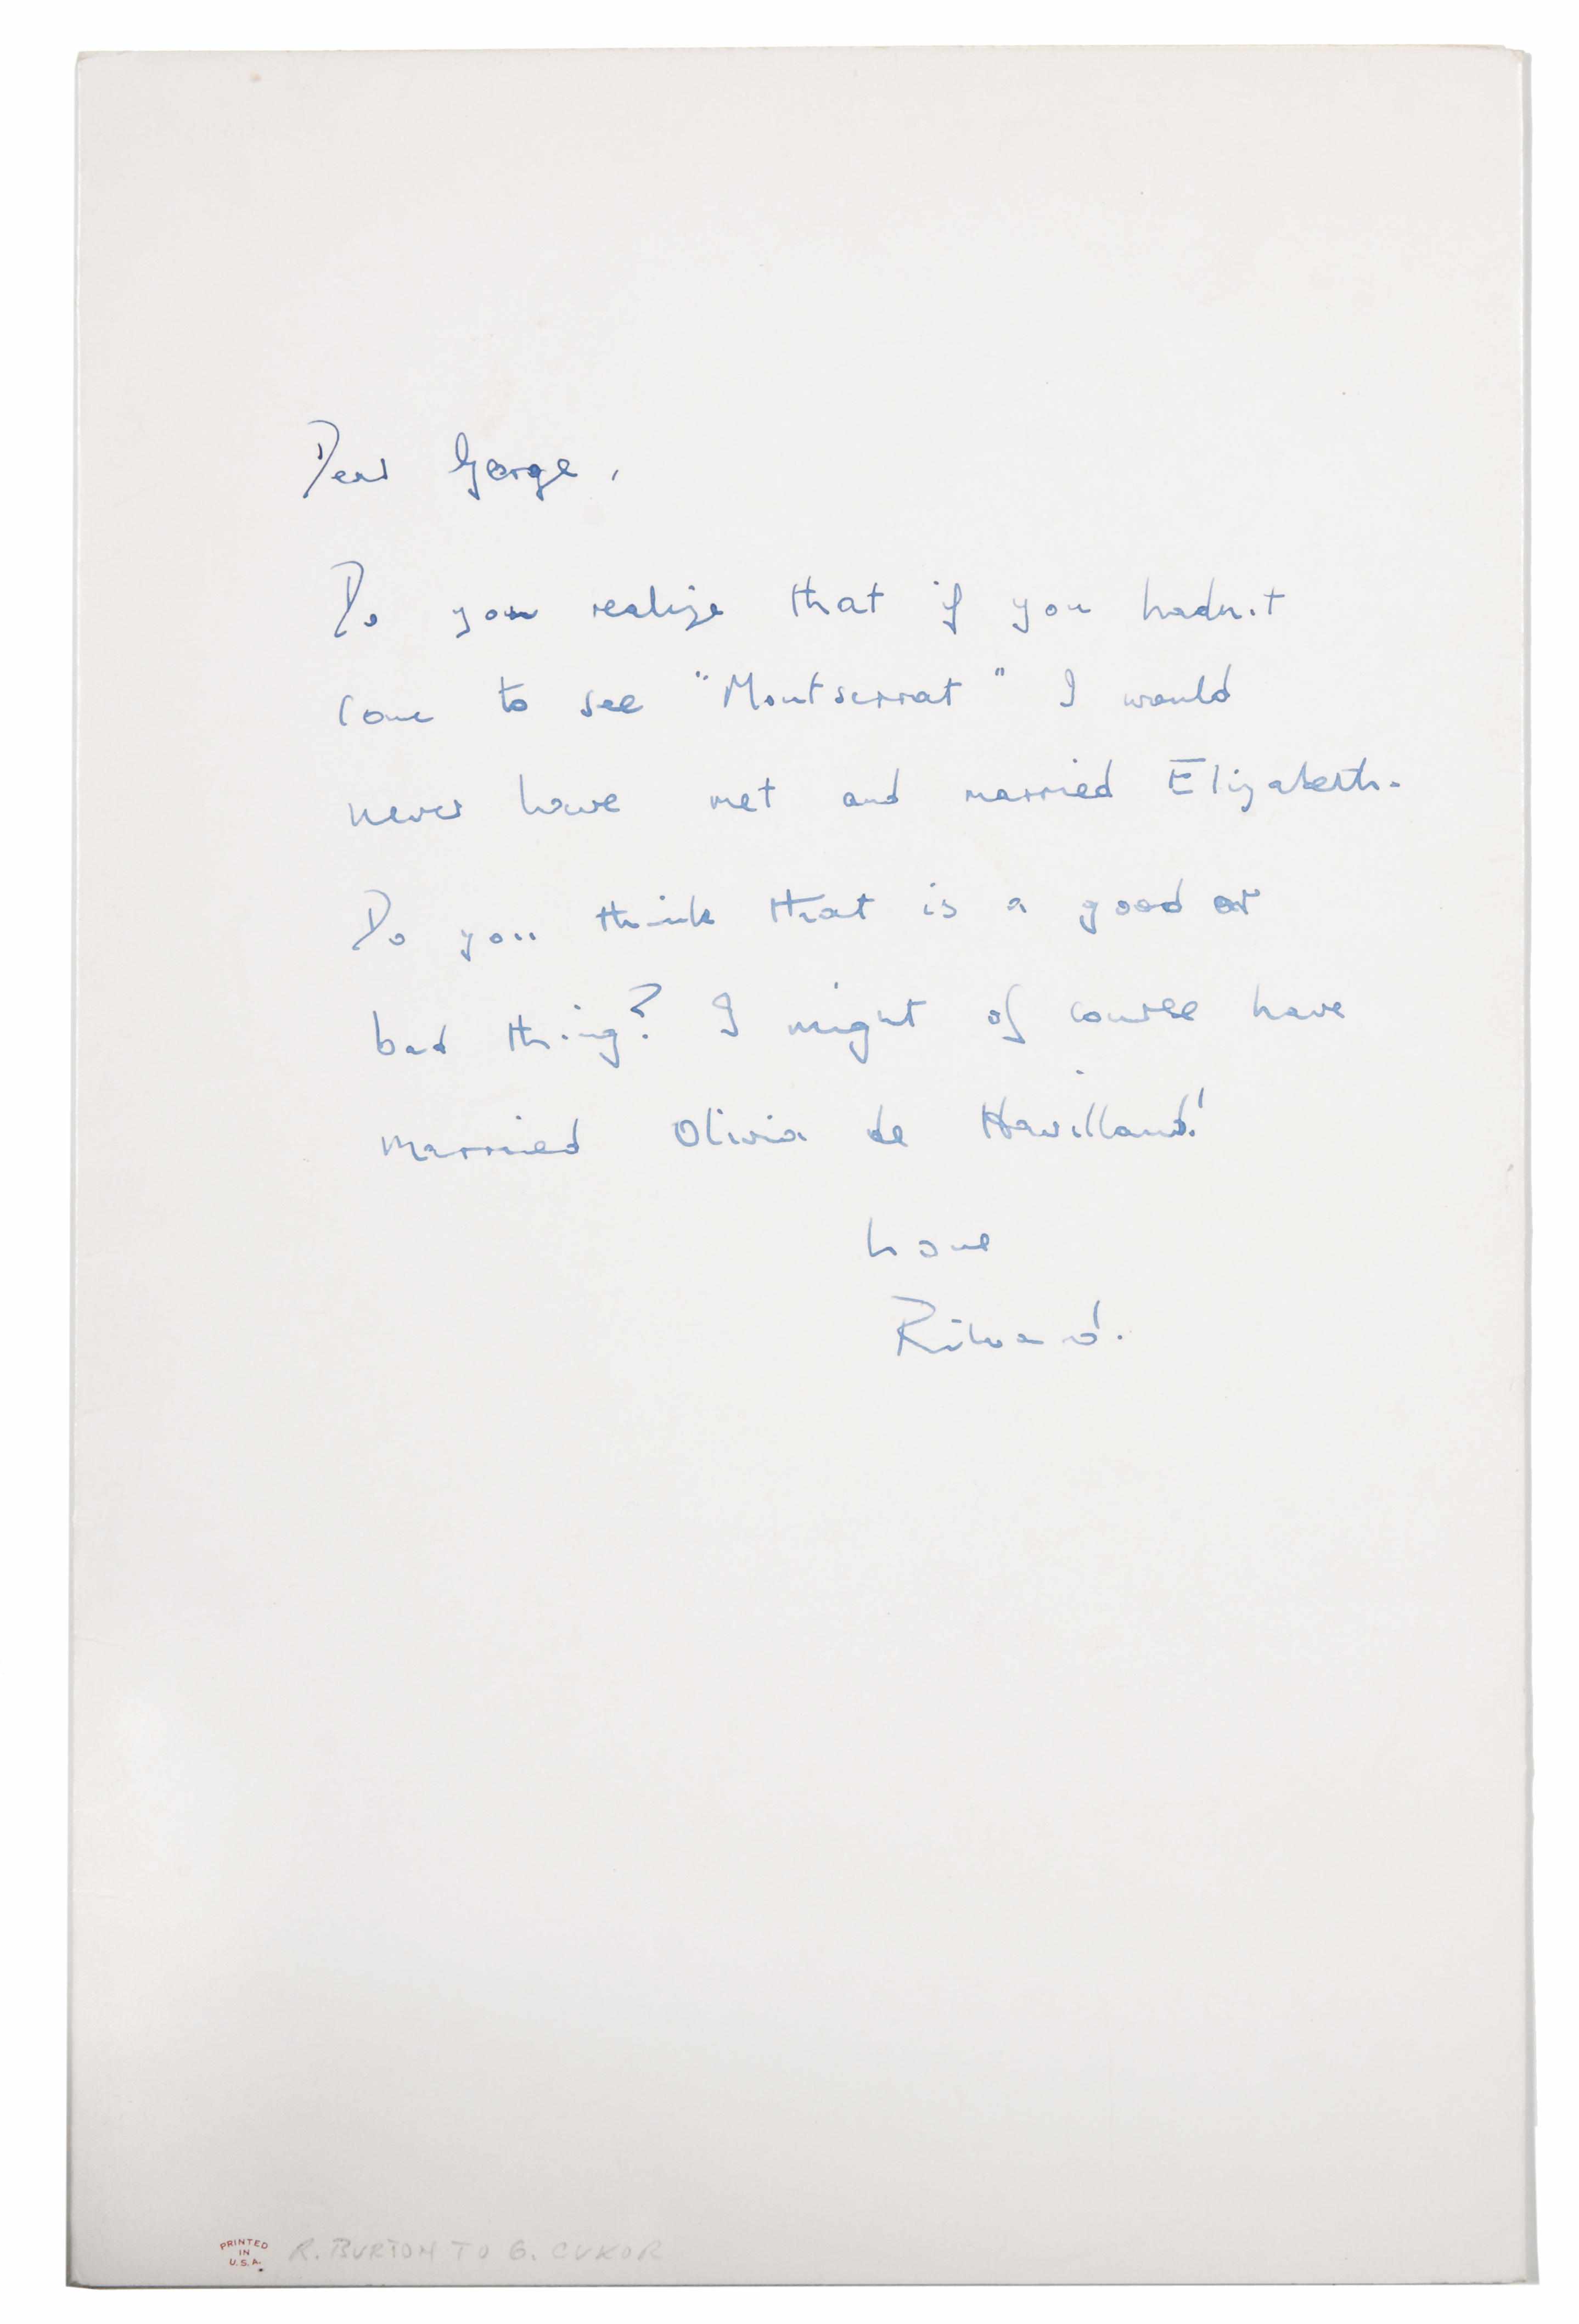 Dear George,
Do you realize that if you hadn't
come to see "Montserrat" I would
never have met and married Elizabeth.
Do you think that is a good or
bad thing? I might of course have
married Olivia de Havilland!
Love
Richard.
PRINTED
IN
U.S.A.
R. BURTON TO G. CUKOR